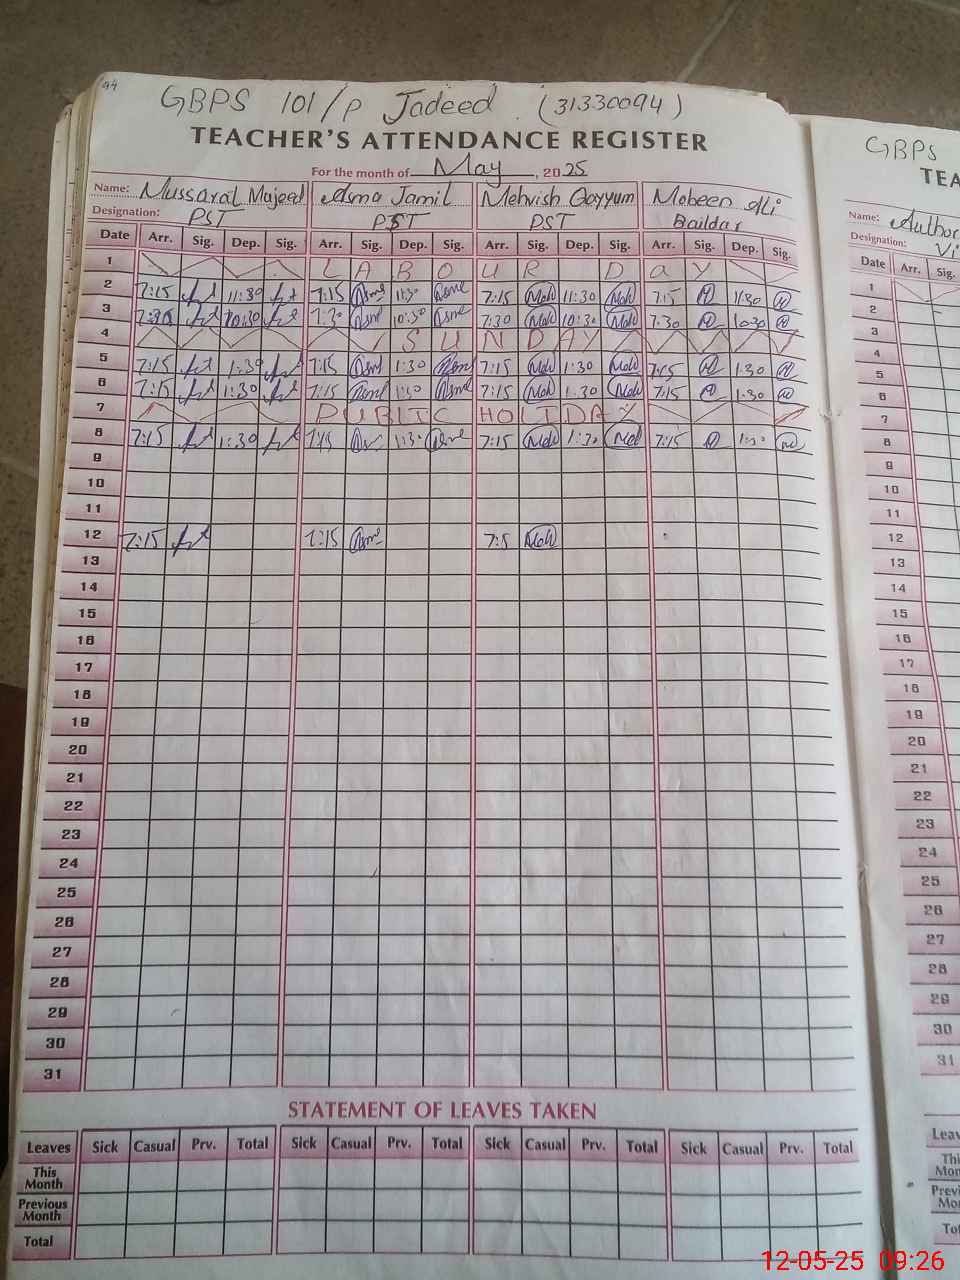 94
GBPS 101/P Jadeed. (31330094)
TEACHER'S ATTENDANCE REGISTER
For the month of May, 2025
Name: Mussarat Majeed Asma Jamil Mehvish Qayyum Mobeen Ali
Designation: PST PST PST Baildar
Date Arr. Sig. Dep. Sig. Arr. Sig. Dep. Sig. Arr. Sig. Dep. Sig. Arr. Sig. Dep. Sig.
1 LABOUR Day
2 7:15 11:30 7:15 Asme 11:30 Asme 7:15 Meh 11:30 Meh 7:15 11:30
3 7:30 10:30 7:30 Asme 10:30 Asme 7:30 Meh 10:30 Meh 7:30 10:30
4 SUNDAY
5 7:15 1:30 7:15 Asme 1:30 Asme 7:15 Meh 1:30 Meh 7:15 1:30
6 7:15 1:30 7:15 Asme 1:30 Asme 7:15 Meh 1:30 Meh 7:15 1:30
7 PUBLIC HOLIDAY
8 7:15 1:30 7:15 1:30 Asme 7:15 Meh 1:30 Meh 7:15 1:30
9
10
11
12 7:15 7:15 Asme 7:15 Meh
13
14
15
16
17
18
19
20
21
22
23
24
25
26
27
28
29
30
31
STATEMENT OF LEAVES TAKEN
Leaves Sick Casual Prv. Total Sick Casual Prv. Total Sick Casual Prv. Total Sick Casual Prv. Total
This Month
Previous Month
Total
GBPS
TEA
Name: Author
Designation: Vi
Date Arr. Sig.
1
2
3
4
5
6
7
8
9
10
11
12
13
14
15
16
17
18
19
20
21
22
23
24
25
26
27
28
29
30
31
Leav
Thi
Mon
Previ
Mo
Tot
12-05-25 09:26